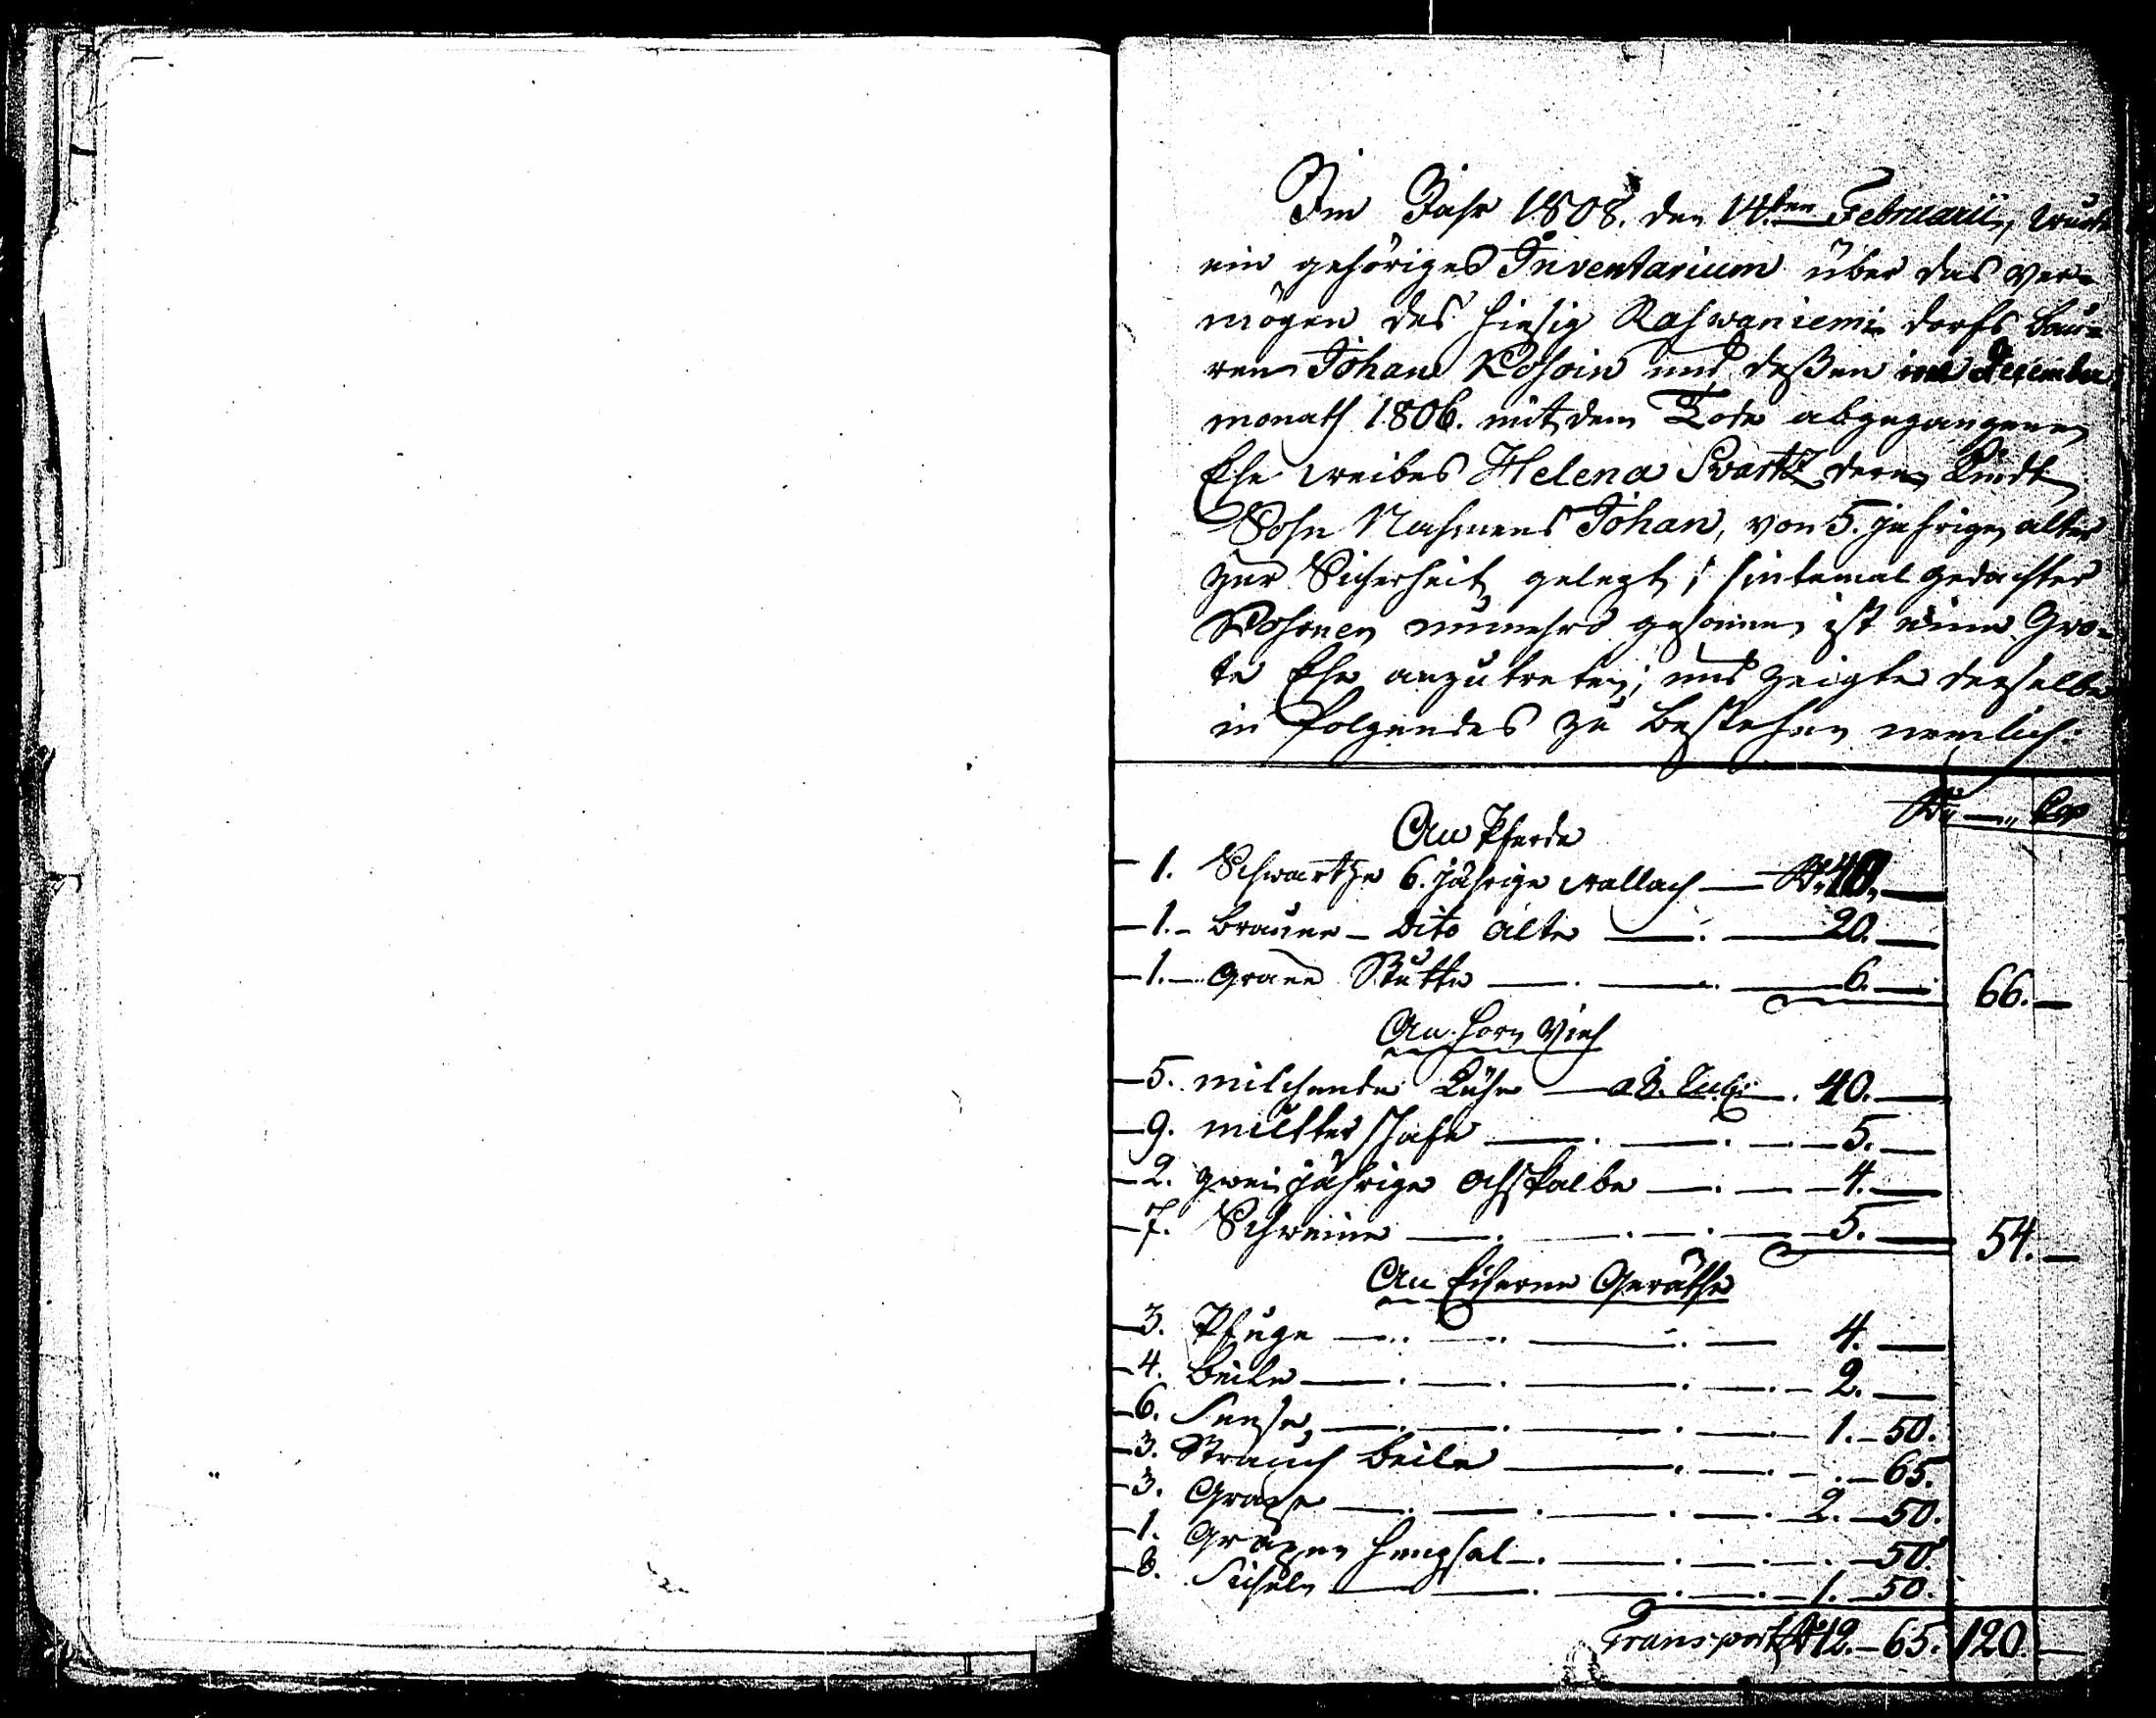 Im Jahr 1808. den 14.ten Februarii, wurde
ein gehöriges Inventarium über das ver=
mögen des hiesig Rahwaniemi dorfs bau=
ren Johan und deßen im December
monath 1806. mit dem Tode abgegangenen
Ehe weibes Helena Svartz deren Kindt
Sohn Nahmens Johan, von 5. jahrigen alter
zur Sicherheit gelegt; sintemal gedachter
nunmehro gesonnen ist eine
te Ehe anzutreten; und zeigte derselbe
in folgendes zu bestehen nemlich:
R — Cop
An Pferde
1. Schwartze 6. jährige Wallach — R 40. —
1. braune — Dito alte — 20. —
1. graue Stutte — 6. — 66. —
An horn Vieh
5. milchende Kühe — a 8. Rubi — 40. —
9. mutter schafe — 5. —
2. zwei jährige ochskalbe — 4. —
7. Schweine — 5. — 54. —
An Eiserne Geräthe
3. Pfluge — 4. —
4. beile — 2. —
6. Sense — 1. — 50.
3. Strauch beile — 65.
3. Grapen — 2. — 50.
1. Grapen hengsel — 50.
8. Sicheln — 1. — 50.
Transport R 12. — 65. 120. —